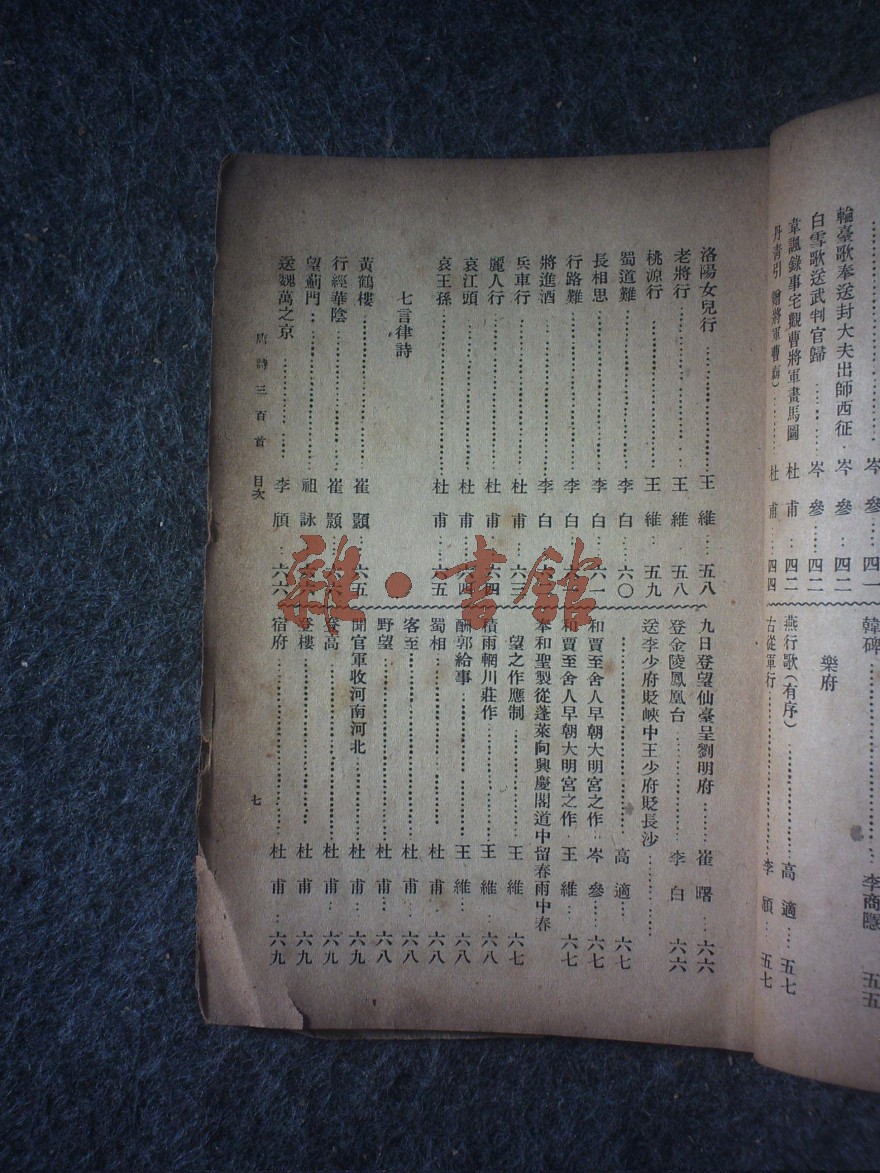 輪臺歌奉送封大夫出師西征‥岑參‥四二
白雪歌送武判官歸‥岑參‥四二
韋諷錄事宅觀曹將軍畫馬圖‥杜甫‥四二
丹青引‥杜甫‥四四
韓碑‥李商隱‥五五
樂府
燕行歌(有序)‥高適‥五七
古從軍行‥李頎‥五七
洛陽女兒行‥王維‥五八
老將行‥王維‥五八
桃源行‥王維‥五九
蜀道難‥李白‥六〇
長相思‥李白‥六一
行路難‥李白‥六
將進酒‥李白‥六
兵車行‥杜甫‥六三
麗人行‥杜甫‥六四
哀江頭‥杜甫‥六四
哀王孫‥杜甫‥六五
七言律詩
黃鶴樓‥崔顥‥六五
行經華陰‥崔顥‥六
望薊門‥祖詠‥六
送魏萬之京‥李頎‥六六
九日登望仙臺呈劉明府‥崔曙‥六六
登金陵鳳凰台‥李白‥六六
送李少府貶峽中王少府貶長沙‥
‥高適‥六七
和賈至舍人早朝大明宮之作‥岑參‥六七
和賈至舍人早朝大明宮之作‥王維‥六七
奉和聖製從蓬萊向興慶閣道中留春雨中春
望之作應制‥王維‥六七
積雨輞川莊作‥王維‥六八
酬郭給事‥王維‥六八
蜀相‥杜甫‥六八
客至‥杜甫‥六八
野望‥杜甫‥六八
聞官軍收河南河北‥杜甫‥六九
登高‥杜甫‥六九
登樓‥杜甫‥六九
宿府‥杜甫‥六九
唐詩三百首 目次
七
雜·書館